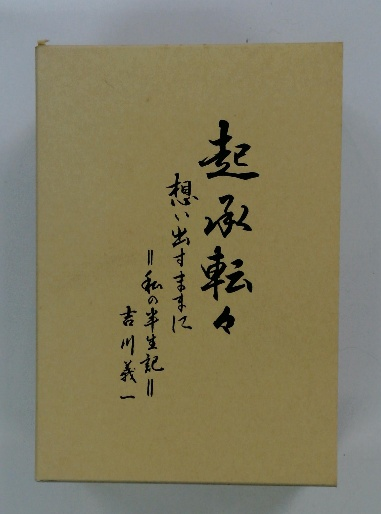 起承転々
想い出すままに
＝私の半生記＝
吉川義一